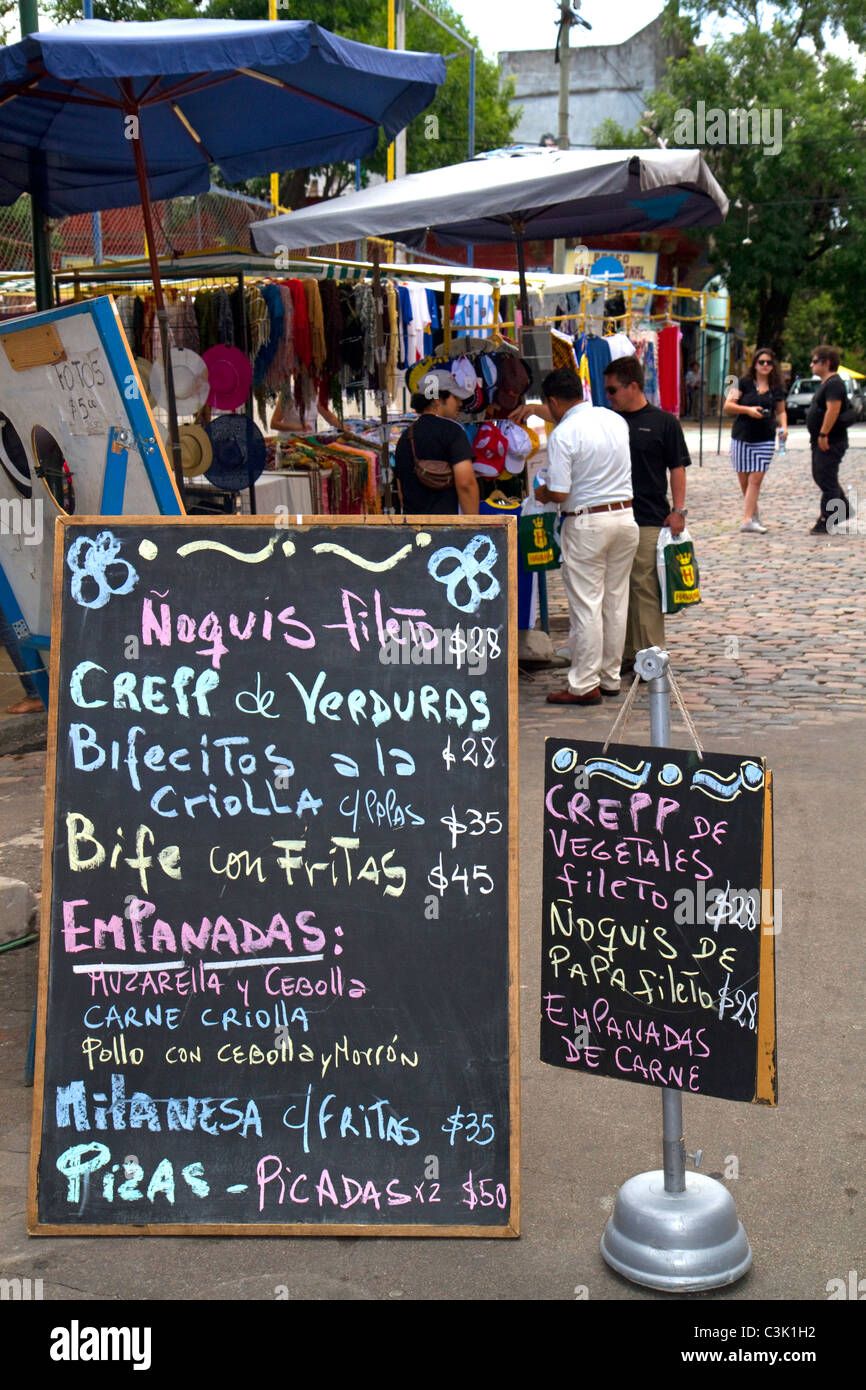 FOTOS
$5
Ñoquis fileto $28
CREPP de VERDURAS
$28
Bifecitos a la
CRIOLLA c/PAPAS $35
Bife con FRITAS $45
EMPANADAS:
MUZARELLA y CEBOLLA
CARNE CRIOLLA
Pollo con CEBOLLA y MORRÓN
MILANESA c/FRITAS $35
PIZAS - PICADAS x2 $50
CREPP DE
VEGETALES
fileto $28
ÑOQUIS DE
PAPA fileto $28
EMPANADAS
DE CARNE
HAVANNA
alamy
Image ID: C3K1H2
www.alamy.com